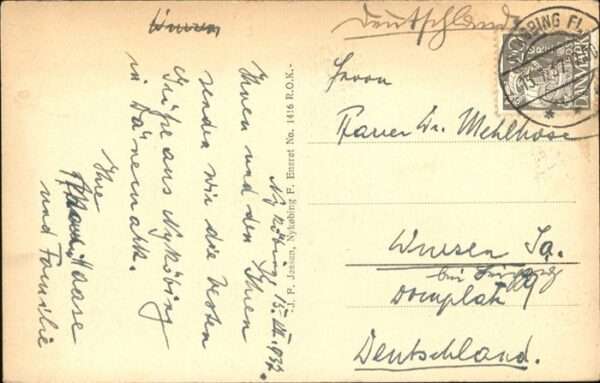 Nyköbing, 15. VII. 1932.
Ihnen und den Ihren
senden wir die besten
Grüße aus Nyköbing
in Dänemark.
Ihre
Haase
und Familie
J. P. Jensen, Nykøbing F. Eneret No. 1416 R.O.K.
Deutschland
KØBING FL.
DANMARK
Herrn
Pfarrer Dr. Mehlhose
Wurzen Sa.
bei Leipzig
Domplatz 9
Deutschland.